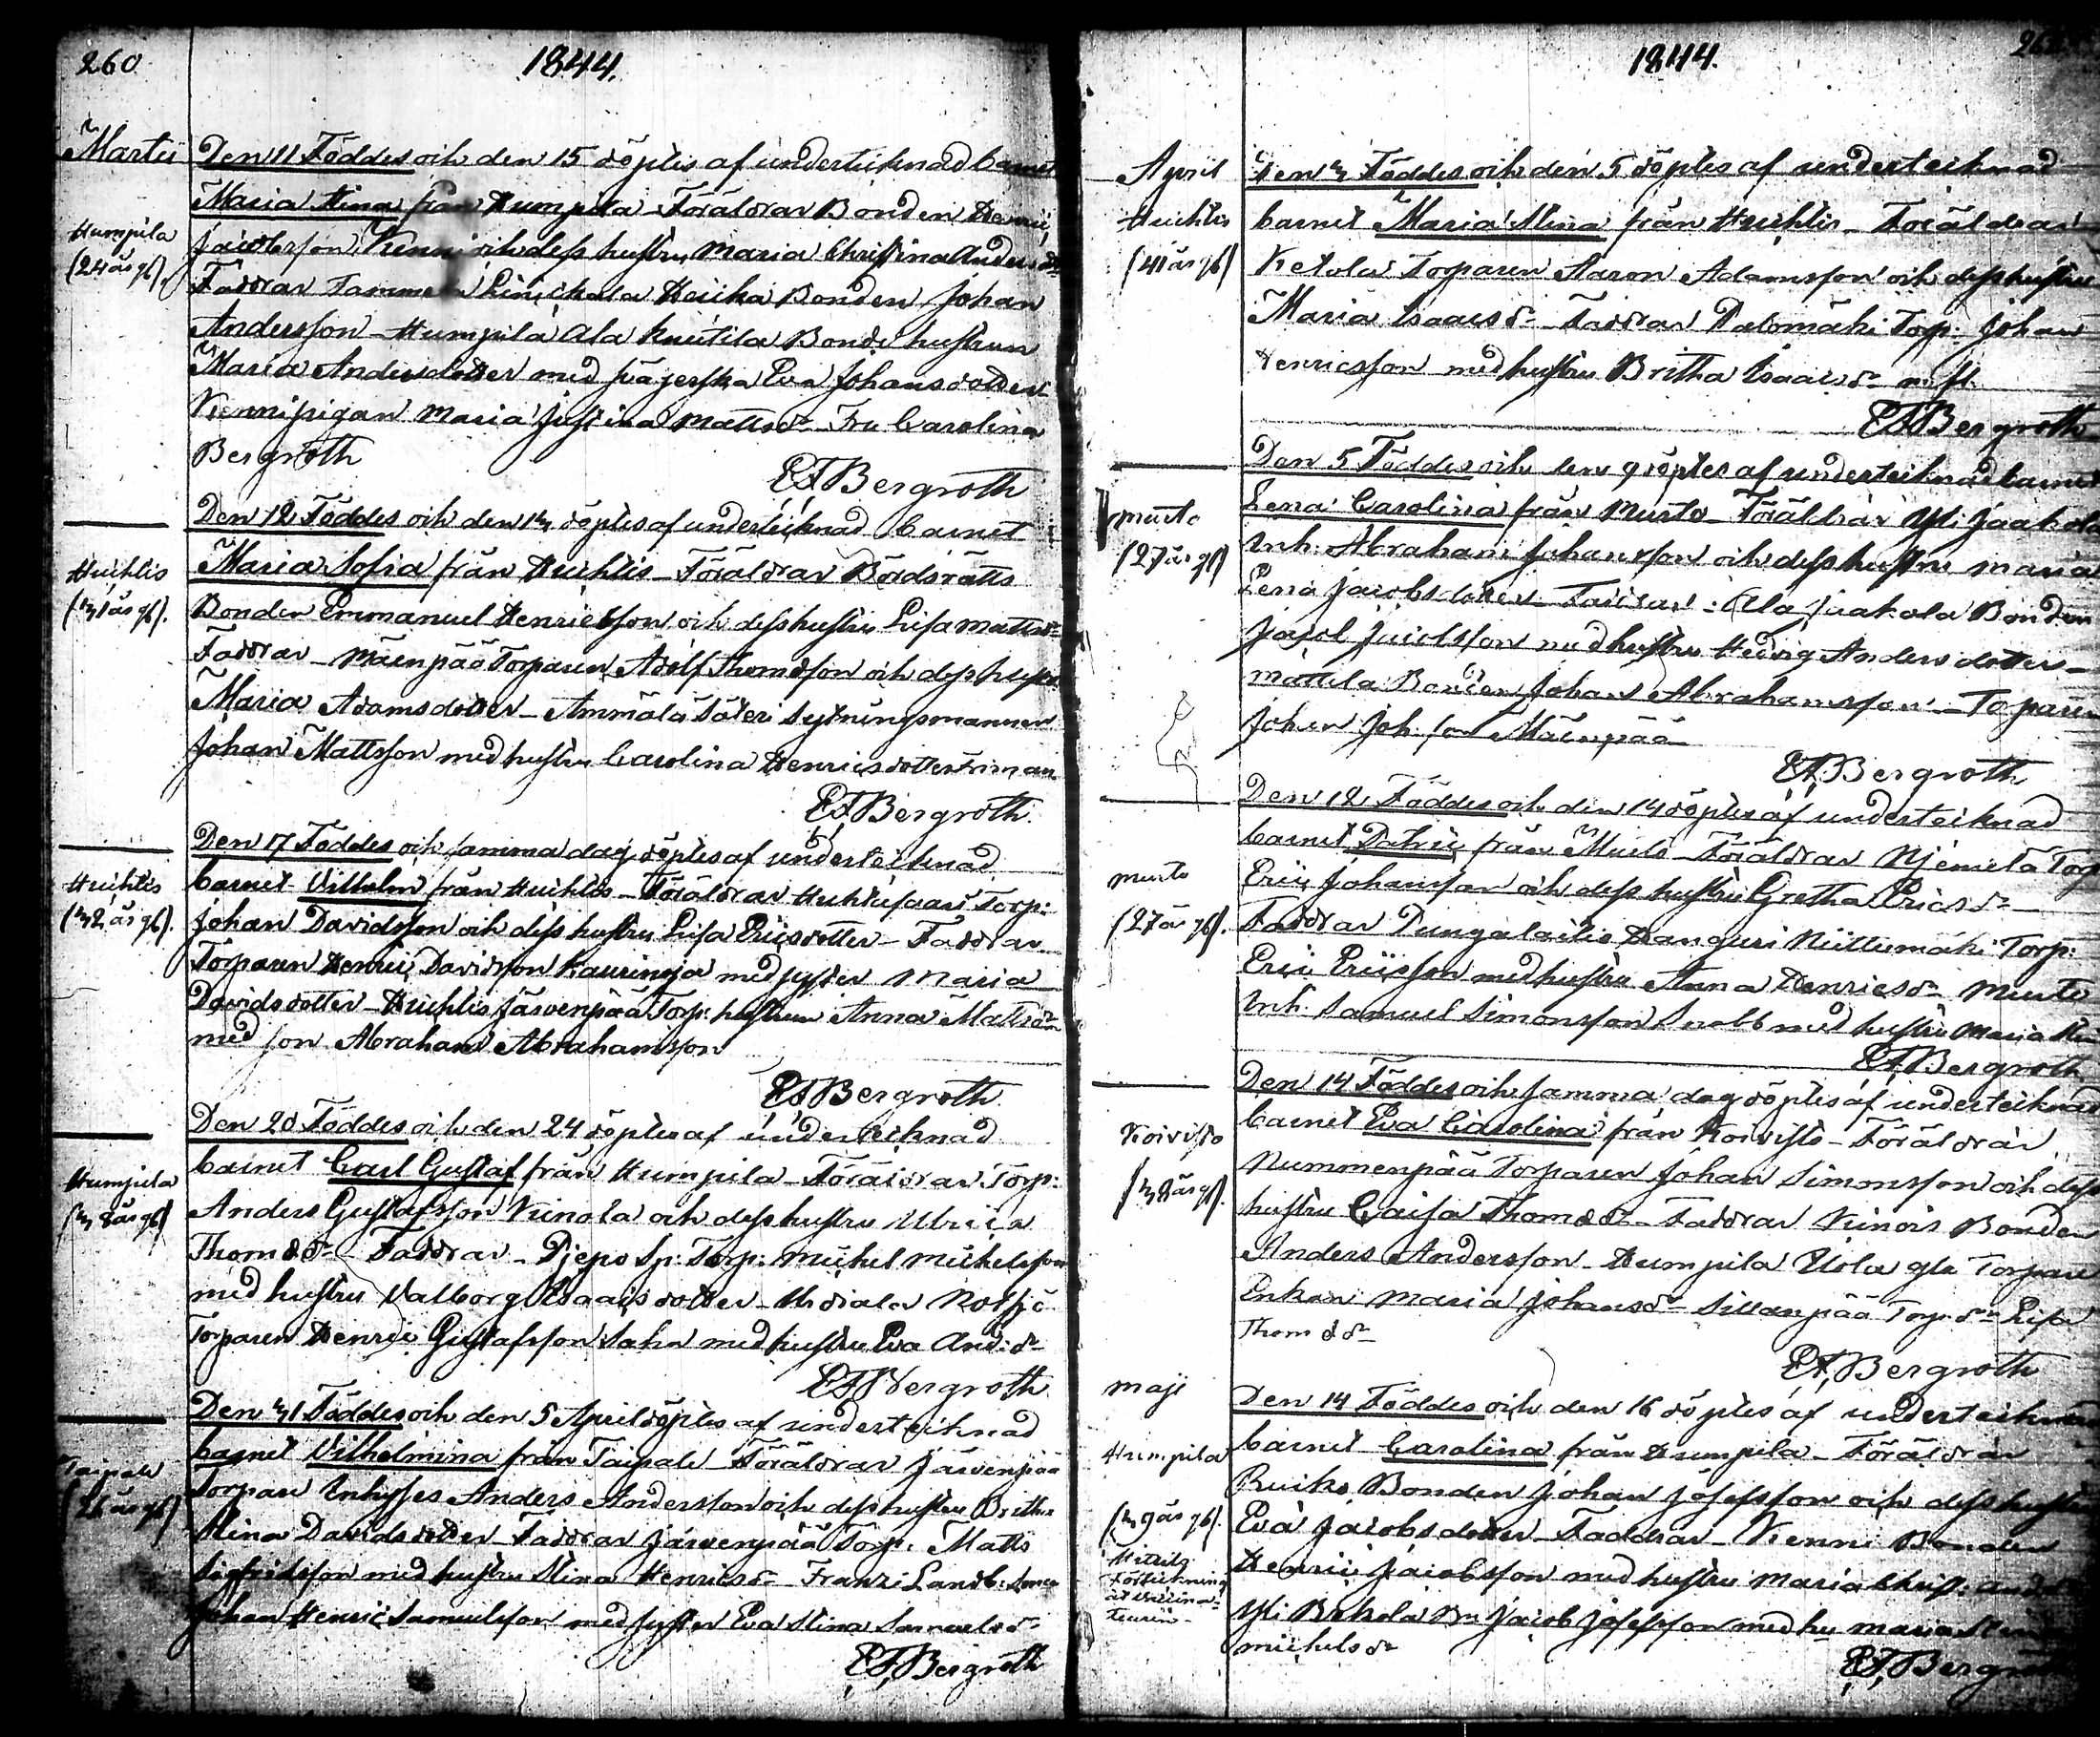 260
1844.
Martii
Den 11 Föddes och den 15 döptes af undertecknad barnet
Maria Stina från Humpila Föräldrar Bonden Henric
Humpila
(24 år gl).
Jacobsson Kenni och dess hustru Maria Christina Anders dr
Faddrar Tammela Heicka Bonden Johan
Andersson - Humpila Ala Knuutila Bonde hustrun
Maria Andersdotter med svägerska Eva Johansdotter
Kennipigan Maria Justina Matts dr Fru Carolina
Bergroth
EF Bergroth
Den 12 Föddes och den 13 döptes af undertecknad barnet
Huhtis
(31 år gl).
Maria Sofia från Huhtis - Föräldrar Bördsrätts
Bonden Emmanuel Henricsson och dess hustru Lisa Matts dr
Faddrar - Mäenpää Torparen Adolf Thomasson och dess hustru
Maria Adamsdotter - Ammälä Säteri Sytningsmannen
Johan Mattsson med hustru Carolina Henricsdotter Friman
EF Bergroth
Den 17 Föddes och samma dag döptes af undertecknad
Huhtis
(32 år gl).
barnet Vilhelm från Huhtis - Föräldrar Huhtisaari Torp:
Johan Davidsson och dess hustru Lisa Ericsdotter - Faddrar
Torparen Henric Davidsson Kaurinoja med syster Maria
Davidsdotter - Huhtis Järvenpää Torp: hustrun Anna Matts dr
med son Abraham Abrahamsson
EF Bergroth
Den 20 Föddes och den 24 döptes af undertecknad
Humpila
(38 år gl)
barnet Carl Gustaf från Humpila - Föräldrar Torp:
Anders Gustafsson Kinola och dess hustru Ulrica
Thomd dr - Faddrar - Torp: Michel Michelsson
med hustru Valborg Isaacsdotter -
Torparen Henric Gustafsson Sahn med hustru Eva And: dr
EF Bergroth
Den 31 Föddes och den 5 April döptes af undertecknad
Taipale
(26 år gl)
barnet Vilhelmina från Taipale - Föräldrar Järvenpää
Torpare Inhyses Anders Andersson och dess hustru Britha
Stina Davidsdotter - Faddrar Järvenpää Torp: Matts
Sigfridsson med hustru Stina Henrics dr - Franzi Landb:
Johan Henric Samuelsson med syster Eva Stina Samuels dr
EF Bergroth
1844.
April
Den 3 Föddes och den 5 döptes af undertecknad
Huhtis
(41 år gl)
barnet Maria Stina från Huhtis - Föräldrar
Ketola Torparen Aaron Adamsson och dess hustru
Maria Isaacs dr - Faddrar Palomäki Torp: Johan
Henricsson med hustru Britha Isaacs dr m fl.
EF Bergroth
Den 5 Föddes och den 9 döptes af undertecknad barnet
Murto
(27 år gl)
Lena Carolina från Murto - Föräldrar Yli Jaakola
Inh: Abraham Johansson och dess hustru Maria
Lena Jacobsdotter - Faddrar: Ala Jaakola Bonden
Jacob Jacobsson med hustru Hedvig Andersdotter -
Mattila Bonden Johan Abrahamsson - Torparen
Johan Joh: son Mäenpää
EF Bergroth
Den 12 Föddes och den 14 döptes af undertecknad
Murto
(27 år gl).
barnet Patric från Murto - Föräldrar Njemelä Torp
Eric Johansson och dess hustru Gretha Erics dr -
Faddrar Pungalaitis Hanguri Niittumäki Torp:
Eric Ericsson med hustru Anna Henrics dr Murto
Inh: Samuel Simonsson Snabb med hustru Maria
EF Bergroth
Den 14 Föddes och samma dag döptes af undertecknad
Koivisto
(38 år gl).
barnet Eva Carolina från Koivisto - Föräldrar
Nummenpää Torparen Johan Simonsson och dess
hustru Caisa Thomd dr - Faddrar Kinois Bonden
Anders Andersson - Humpila Uola gla Torpare
Enkan Maria Johans dr - Sillanpää Torp. dr Lisa
Thomd dr
EF Bergroth
Maji
Den 14 Föddes och den 16 döptes af undertecknad
Humpila
(39 år gl).
barnet Carolina från Humpila - Föräldrar
Ruiko Bonden Johan Josefsson och dess hustru
Eva Jacobsdotter - Faddrar - Kenni Bonden
Henric Jacobsson med hustru Maria Christ:
Yli Bn Jacob Josefsson med hu Maria Stina
Michels dr
EF Bergroth